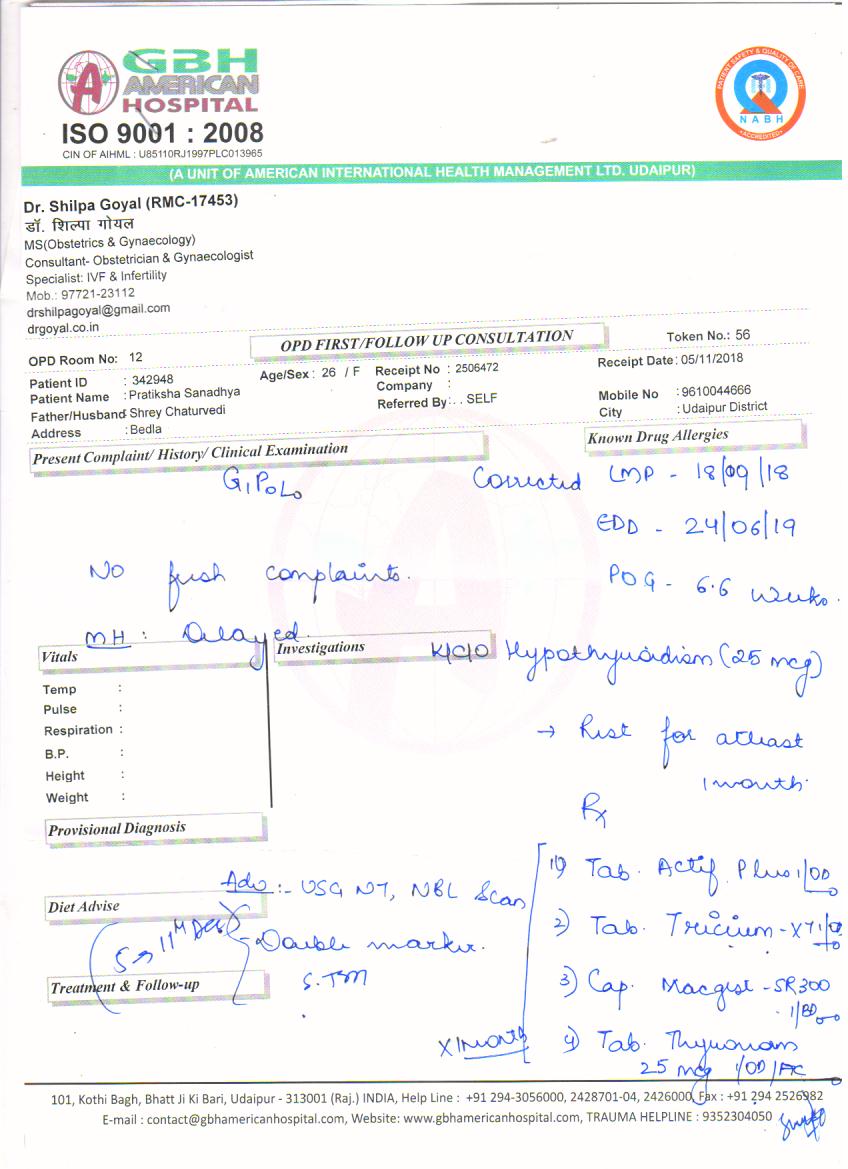 GBH
AMERICAN
HOSPITAL
ISO 9001 : 2008
CIN OF AIHML : U85110RJ1997PLC013965
PATIENT SAFETY & QUALITY OF CARE
NABH
ACCREDITED
(A UNIT OF AMERICAN INTERNATIONAL HEALTH MANAGEMENT LTD. UDAIPUR)
Dr. Shilpa Goyal (RMC-17453)
डॉ. शिल्पा गोयल
MS(Obstetrics & Gynaecology)
Consultant- Obstetrician & Gynaecologist
Specialist: IVF & Infertility
Mob.: 97721-23112
drshilpagoyal@gmail.com
drgoyal.co.in
OPD FIRST/FOLLOW UP CONSULTATION
Token No.: 56
OPD Room No: 12
Receipt Date: 05/11/2018
Patient ID : 342948
Age/Sex : 26 / F
Receipt No : 2506472
Patient Name : Pratiksha Sanadhya
Company :
Mobile No : 9610044666
Father/Husband : Shrey Chaturvedi
Referred By : . . SELF
City : Udaipur District
Address : Bedla
Present Complaint/ History/ Clinical Examination
Known Drug Allergies
G1P0L0
Corrected LMP - 18/09/18
EDD - 24/06/19
No fresh complaints.
POG - 6.6 weeks.
MH : Delayed.
Vitals
Investigations
K/C/O Hypothyroidism (25 mcg)
Temp :
Pulse :
Respiration :
B.P. :
Height :
Weight :
→ Rest for atleast
1 month.
Rx
Provisional Diagnosis
1) Tab. Actif Plus 1/OD
Adv :- USG NT, NBL Scan
Diet Advise
2) Tab. Tricium - XT 1/OD
Double marker.
Treatment & Follow-up
S. TSH
3) Cap. Macgest - SR300
1/BD
X 1 month
4) Tab. Thyronorm
25 mcg 1/OD/AC
101, Kothi Bagh, Bhatt Ji Ki Bari, Udaipur - 313001 (Raj.) INDIA, Help Line : +91 294-3056000, 2428701-04, 2426000, Fax : +91 294 2526982
E-mail : contact@gbhamericanhospital.com, Website: www.gbhamericanhospital.com, TRAUMA HELPLINE : 9352304050